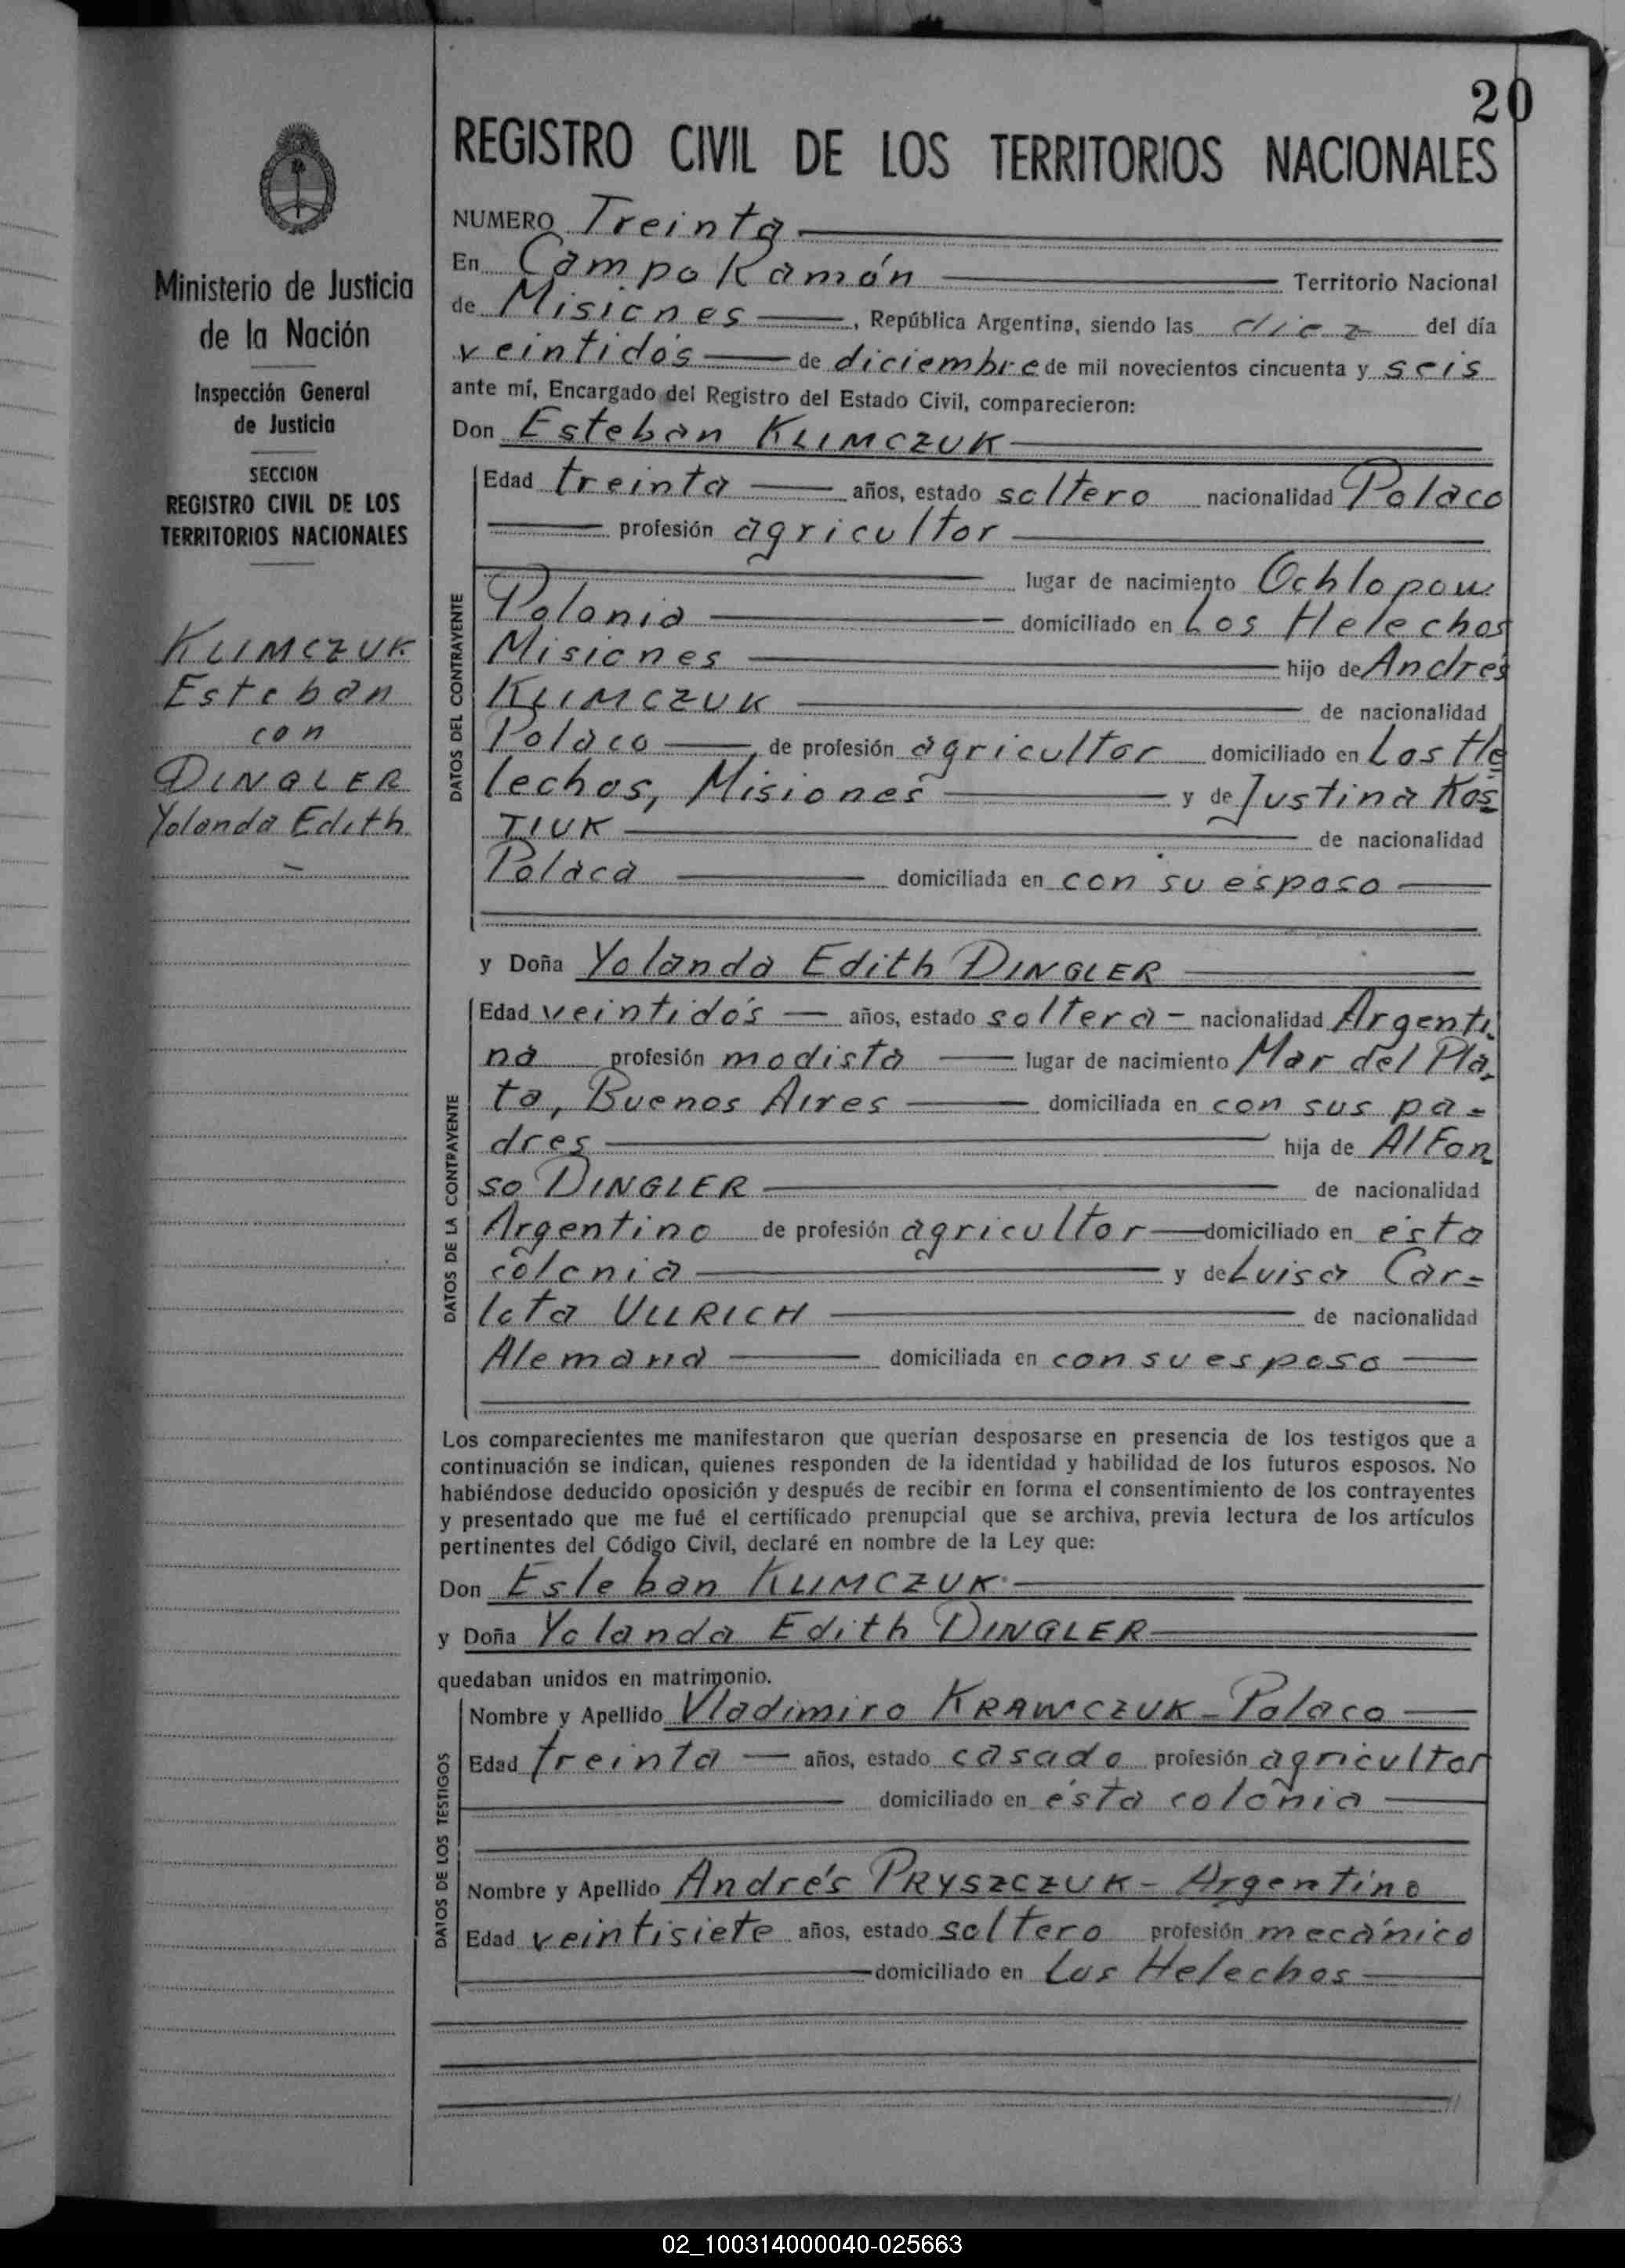 20
REGISTRO CIVIL DE LOS TERRITORIOS NACIONALES
Ministerio de Justicia
de la Nación
Inspección General
de Justicia
SECCION
REGISTRO CIVIL DE LOS
TERRITORIOS NACIONALES
KLIMCZUK
Esteban
con
DINGLER
Yolanda Edith
NUMERO Treinta
En Campo Ramón Territorio Nacional
de Misiones, República Argentina, siendo las diez del día
veintidós de diciembre de mil novecientos cincuenta y seis
ante mí, Encargado del Registro del Estado Civil, comparecieron:
Don Esteban KLIMCZUK
DATOS DEL CONTRAYENTE
Edad treinta años, estado soltero nacionalidad Polaco
profesión agricultor
lugar de nacimiento Ochlopow
Polonia domiciliado en Los Helechos
Misiones hijo de Andrés
KLIMCZUK de nacionalidad
Polaco, de profesión agricultor domiciliado en Los He
lechos, Misiones y de Justina Kos
TIUK de nacionalidad
Polaca domiciliada en con su esposo
y Doña Yolanda Edith DINGLER
DATOS DE LA CONTRAYENTE
Edad veintidós años, estado soltera - nacionalidad Argenti
na profesión modista lugar de nacimiento Mar del Pla
ta, Buenos Aires domiciliada en con sus pa=
dres hija de Alfon
so DINGLER de nacionalidad
Argentino de profesión agricultor domiciliado en ésta
colonia y de Luisa Car=
lota ULLRICH de nacionalidad
Alemana domiciliada en con su esposo
Los comparecientes me manifestaron que querían desposarse en presencia de los testigos que a
continuación se indican, quienes responden de la identidad y habilidad de los futuros esposos. No
habiéndose deducido oposición y después de recibir en forma el consentimiento de los contrayentes
y presentado que me fué el certificado prenupcial que se archiva, previa lectura de los artículos
pertinentes del Código Civil, declaré en nombre de la Ley que:
Don Esteban KLIMCZUK
y Doña Yolanda Edith DINGLER
quedaban unidos en matrimonio.
DATOS DE LOS TESTIGOS
Nombre y Apellido Vladimiro KRAWCZUK - Polaco
Edad treinta años, estado casado profesión agricultor
domiciliado en ésta colonia
Nombre y Apellido Andrés PRYSZCZUK - Argentino
Edad veintisiete años, estado soltero profesión mecánico
domiciliado en Los Helechos
02_100314000040-025663